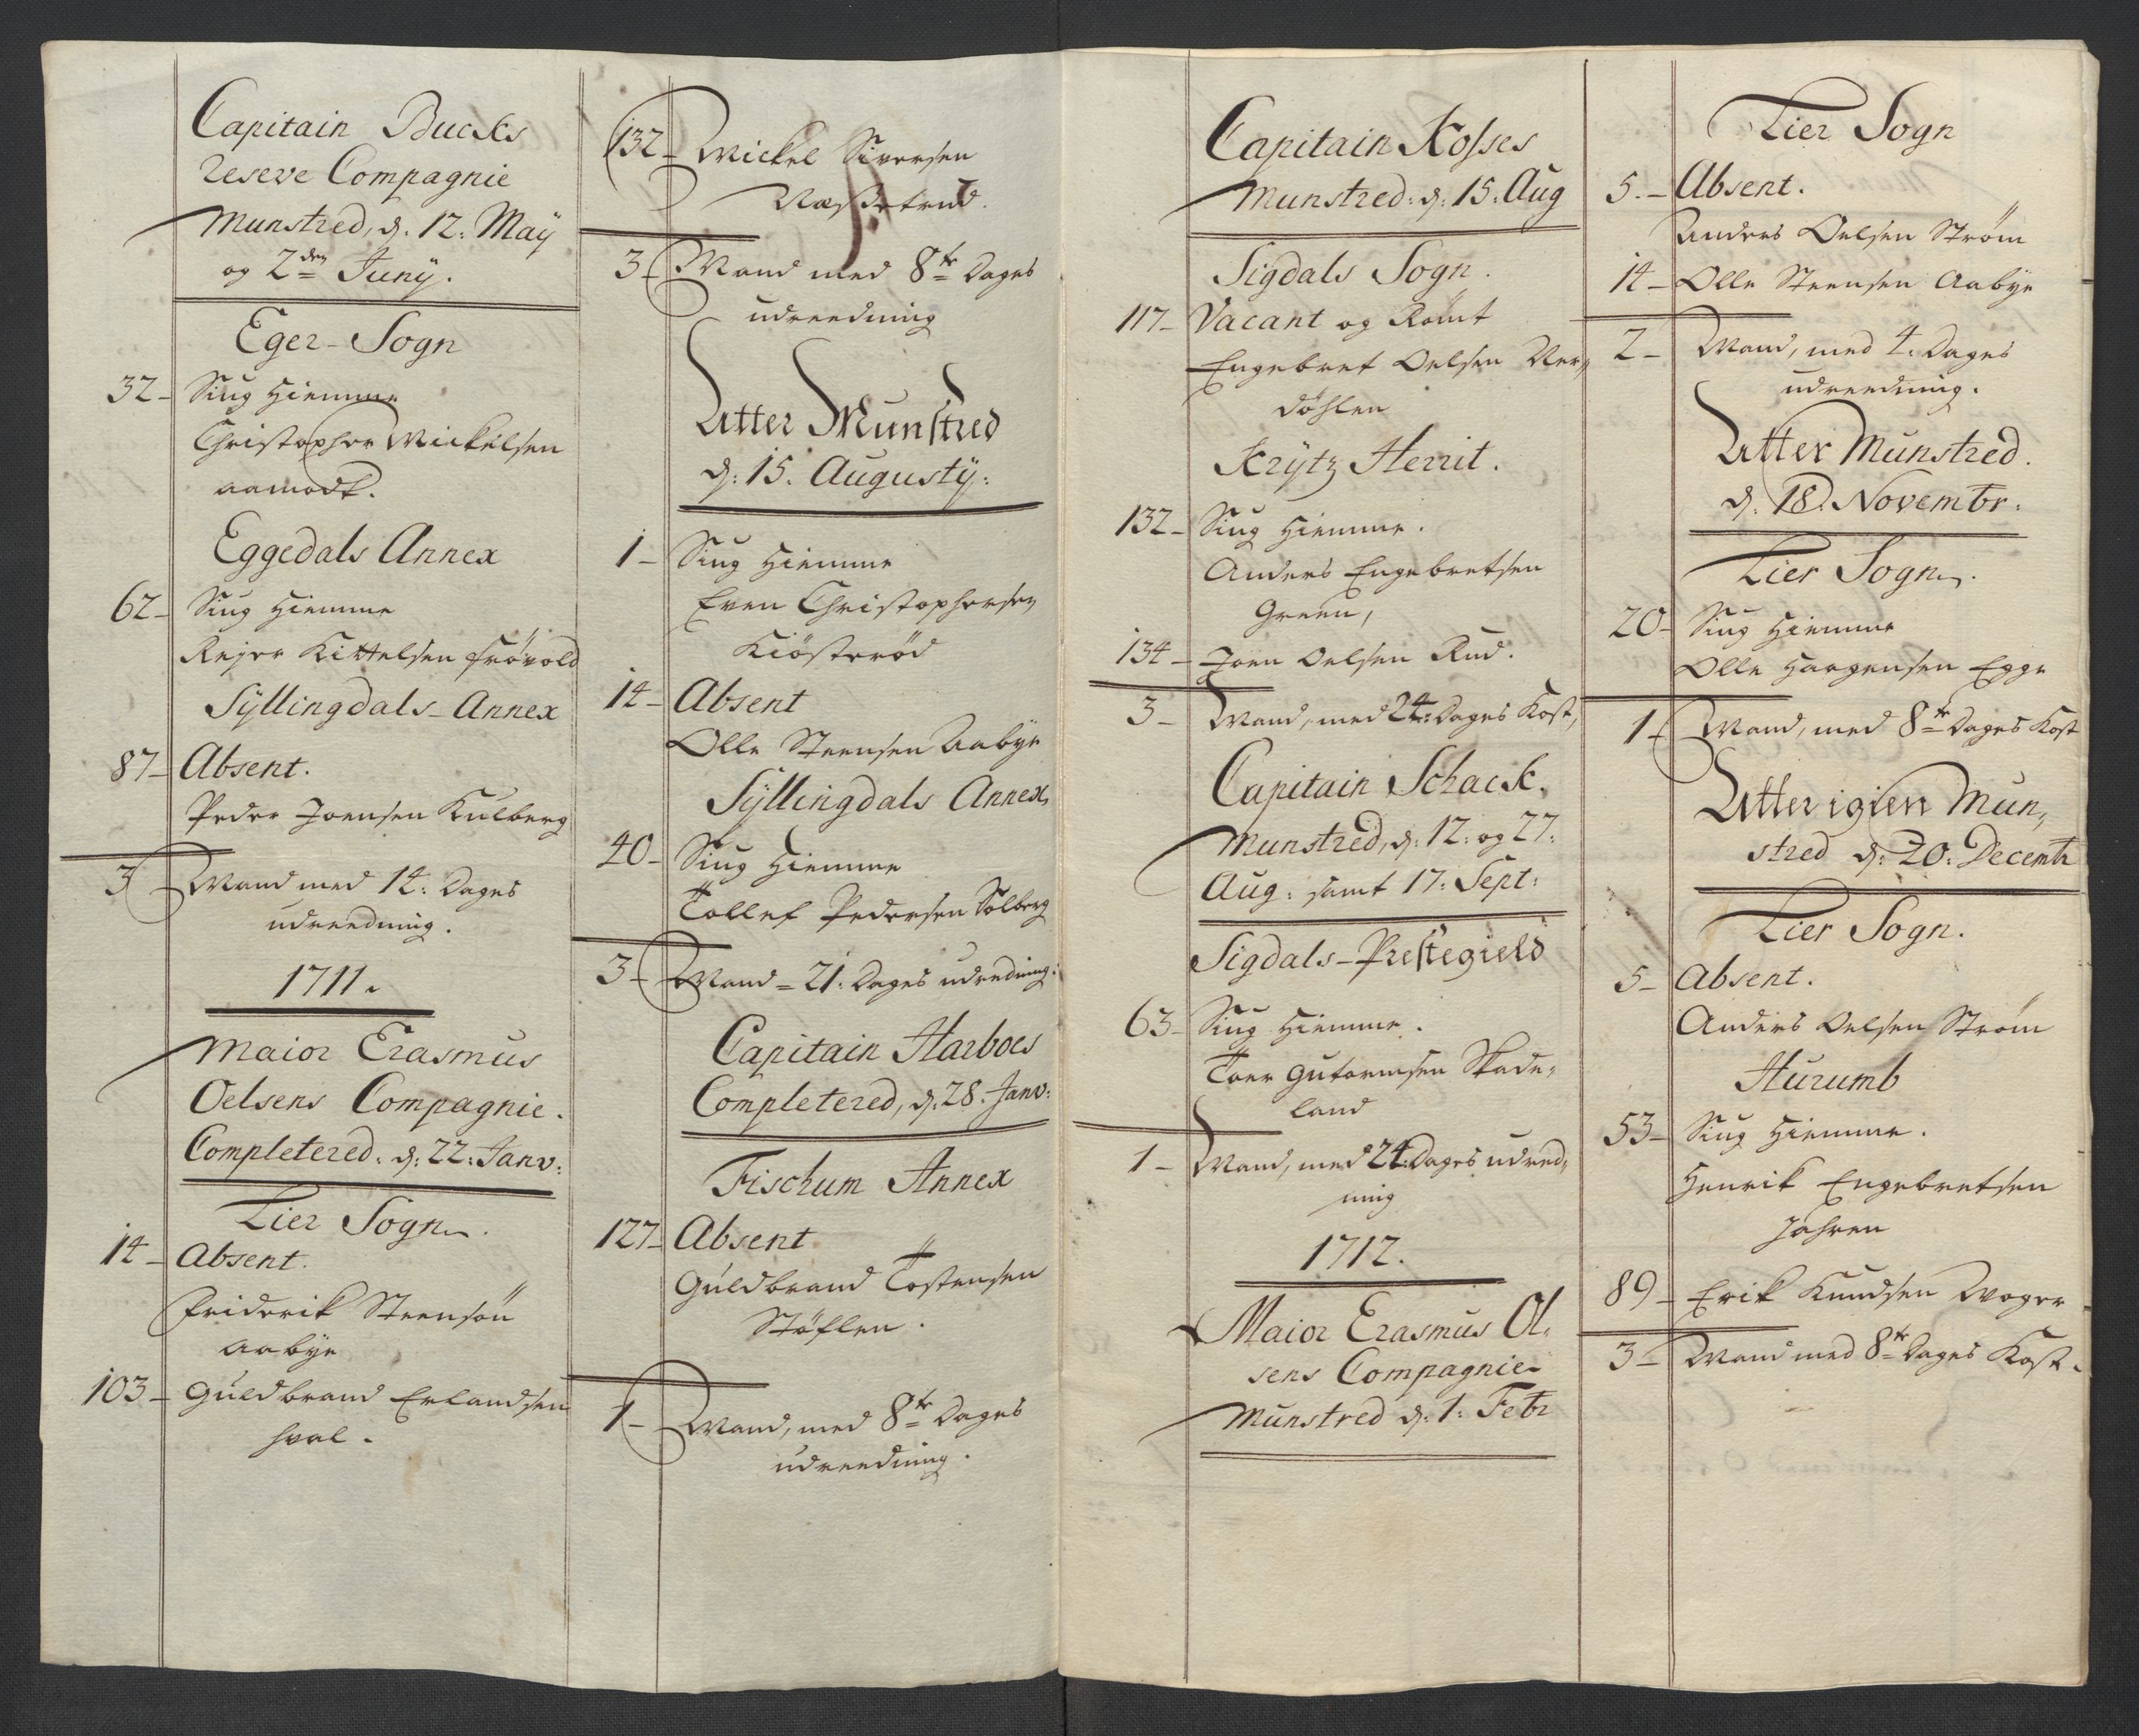 Capitain Bucks
reseve Compagnie
Munstred, d. 12. Maÿ
og 2den Junÿ.
Eger-Sogn
32- Siug Hiemme
Christopher Mickelsen
Aamodt.
Eggedals Annex
62- Siug Hiemme
Rejer Kittelsen Frövold
Sÿllingdals-Annex
87- Absent.
Peder Joensen Kulberg
3 Mand med 14: Dages
udreedning.
1711.
Maior Erasmus
Oelsens Compagnie.
Completered. d: 22: Janv:
Lier Sogn.
14- Absent.
Friderik Steensøn
Aabye
103- Guldbrand Erlandsen
Hval.
132- Mickel Siversen
3- Mand med 8te Dages
udreedning
Atter Munstred
d: 15. Augustÿ:
1- Siug Hiemme
Even Christophersen
Kiösterød
14- Absent
Olle Steensen Aabye
Sÿllingdals Annex
40- Siug Hiemme
Tollef Pedersen Solberg
3- Mand = 21: Dages udredning:
Capitain Harboes
Completered, d. 28. Janv:
Fischum Annex
127- Absent
Guldbrand Tostensen
Støflen.
1- Mand, med 8te Dages
udreedning.
Capitain Kosses
Munstred: d: 15. Aug
Sigdals Sogn.
117- Vacant og Römt
Engebret Oelsen Ver,
döhlen
Krÿtz Herrit.
132- Siug Hiemme.
Anders Engebretsen
Green,
134- Joen Oelsen Rud.
3- Mand, med 24: Dages Kost,
Capitain Schack.
Munstred, d: 12: og 27:
Aug: samt 17: Sept:
Sigdals-Prestegield
63- Siug Hiemme.
Toer Gutormsen Skade,
land
1- Mand, med 24: Dages udred,
ning
1712.
Maior Erasmus Ol,
sens Compagnie
Munstred d: 1: Febr
Lier Sogn
5.- Absent.
Anders Oelsen Ström
14- Olle Steensen Aabye
2- Mand, med 4: Dages
udreedning.
Atter Munstred.
d. 18. Novembr:
Lier Sogn.
20- Siug Hiemme
Olle Haagensen Egge
1- Mand, med 8te Dages Kost
Atter igien Mun,
stred d: 20: Decembr
Lier Sogn.
5- Absent.
Anders Oelsen Ström
Hurumb
53- Siug Hiemme.
Henrik Engebretsen
Jahren
89- Erik Knudsen
3- Mand med 8te Dages Kost.